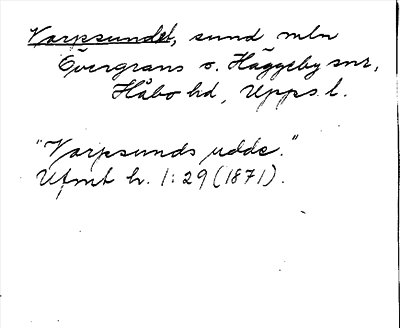 Varpsundet, sund mln
Övergrans o. Häggeby snr,
Håbo hd, Upps. l.
"Varpsunds udde."
Ufmt h. 1:29 (1871).